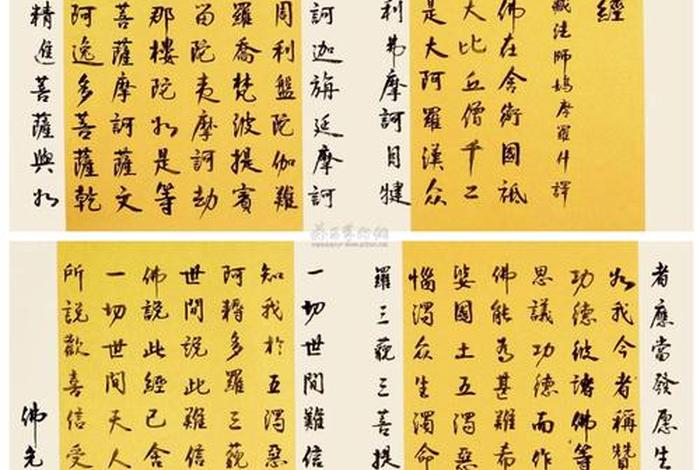 經
藏法師鳩摩羅什譯
佛在舍衛國祇
大比丘僧千二
是大阿羅漢众
利弗摩訶目犍
訶迦旃延摩訶
周利盤陀伽難
羅喬梵波提賓
留陀夷摩訶劫
那樓陀如是等
菩薩摩訶薩文
阿逸多菩薩乾
精進菩薩與如
者應當發愿生
如我今者稱贊
功德彼諸佛等
思議功德而作
佛能為甚難希
娑國土五濁惡
惱濁众生濁命
羅三藐三菩提
一切世間難信
知我於五濁惡
阿耨多羅三藐
世間說此難信
佛說此經已舍
一切世間天人
所說歡喜信受
佛